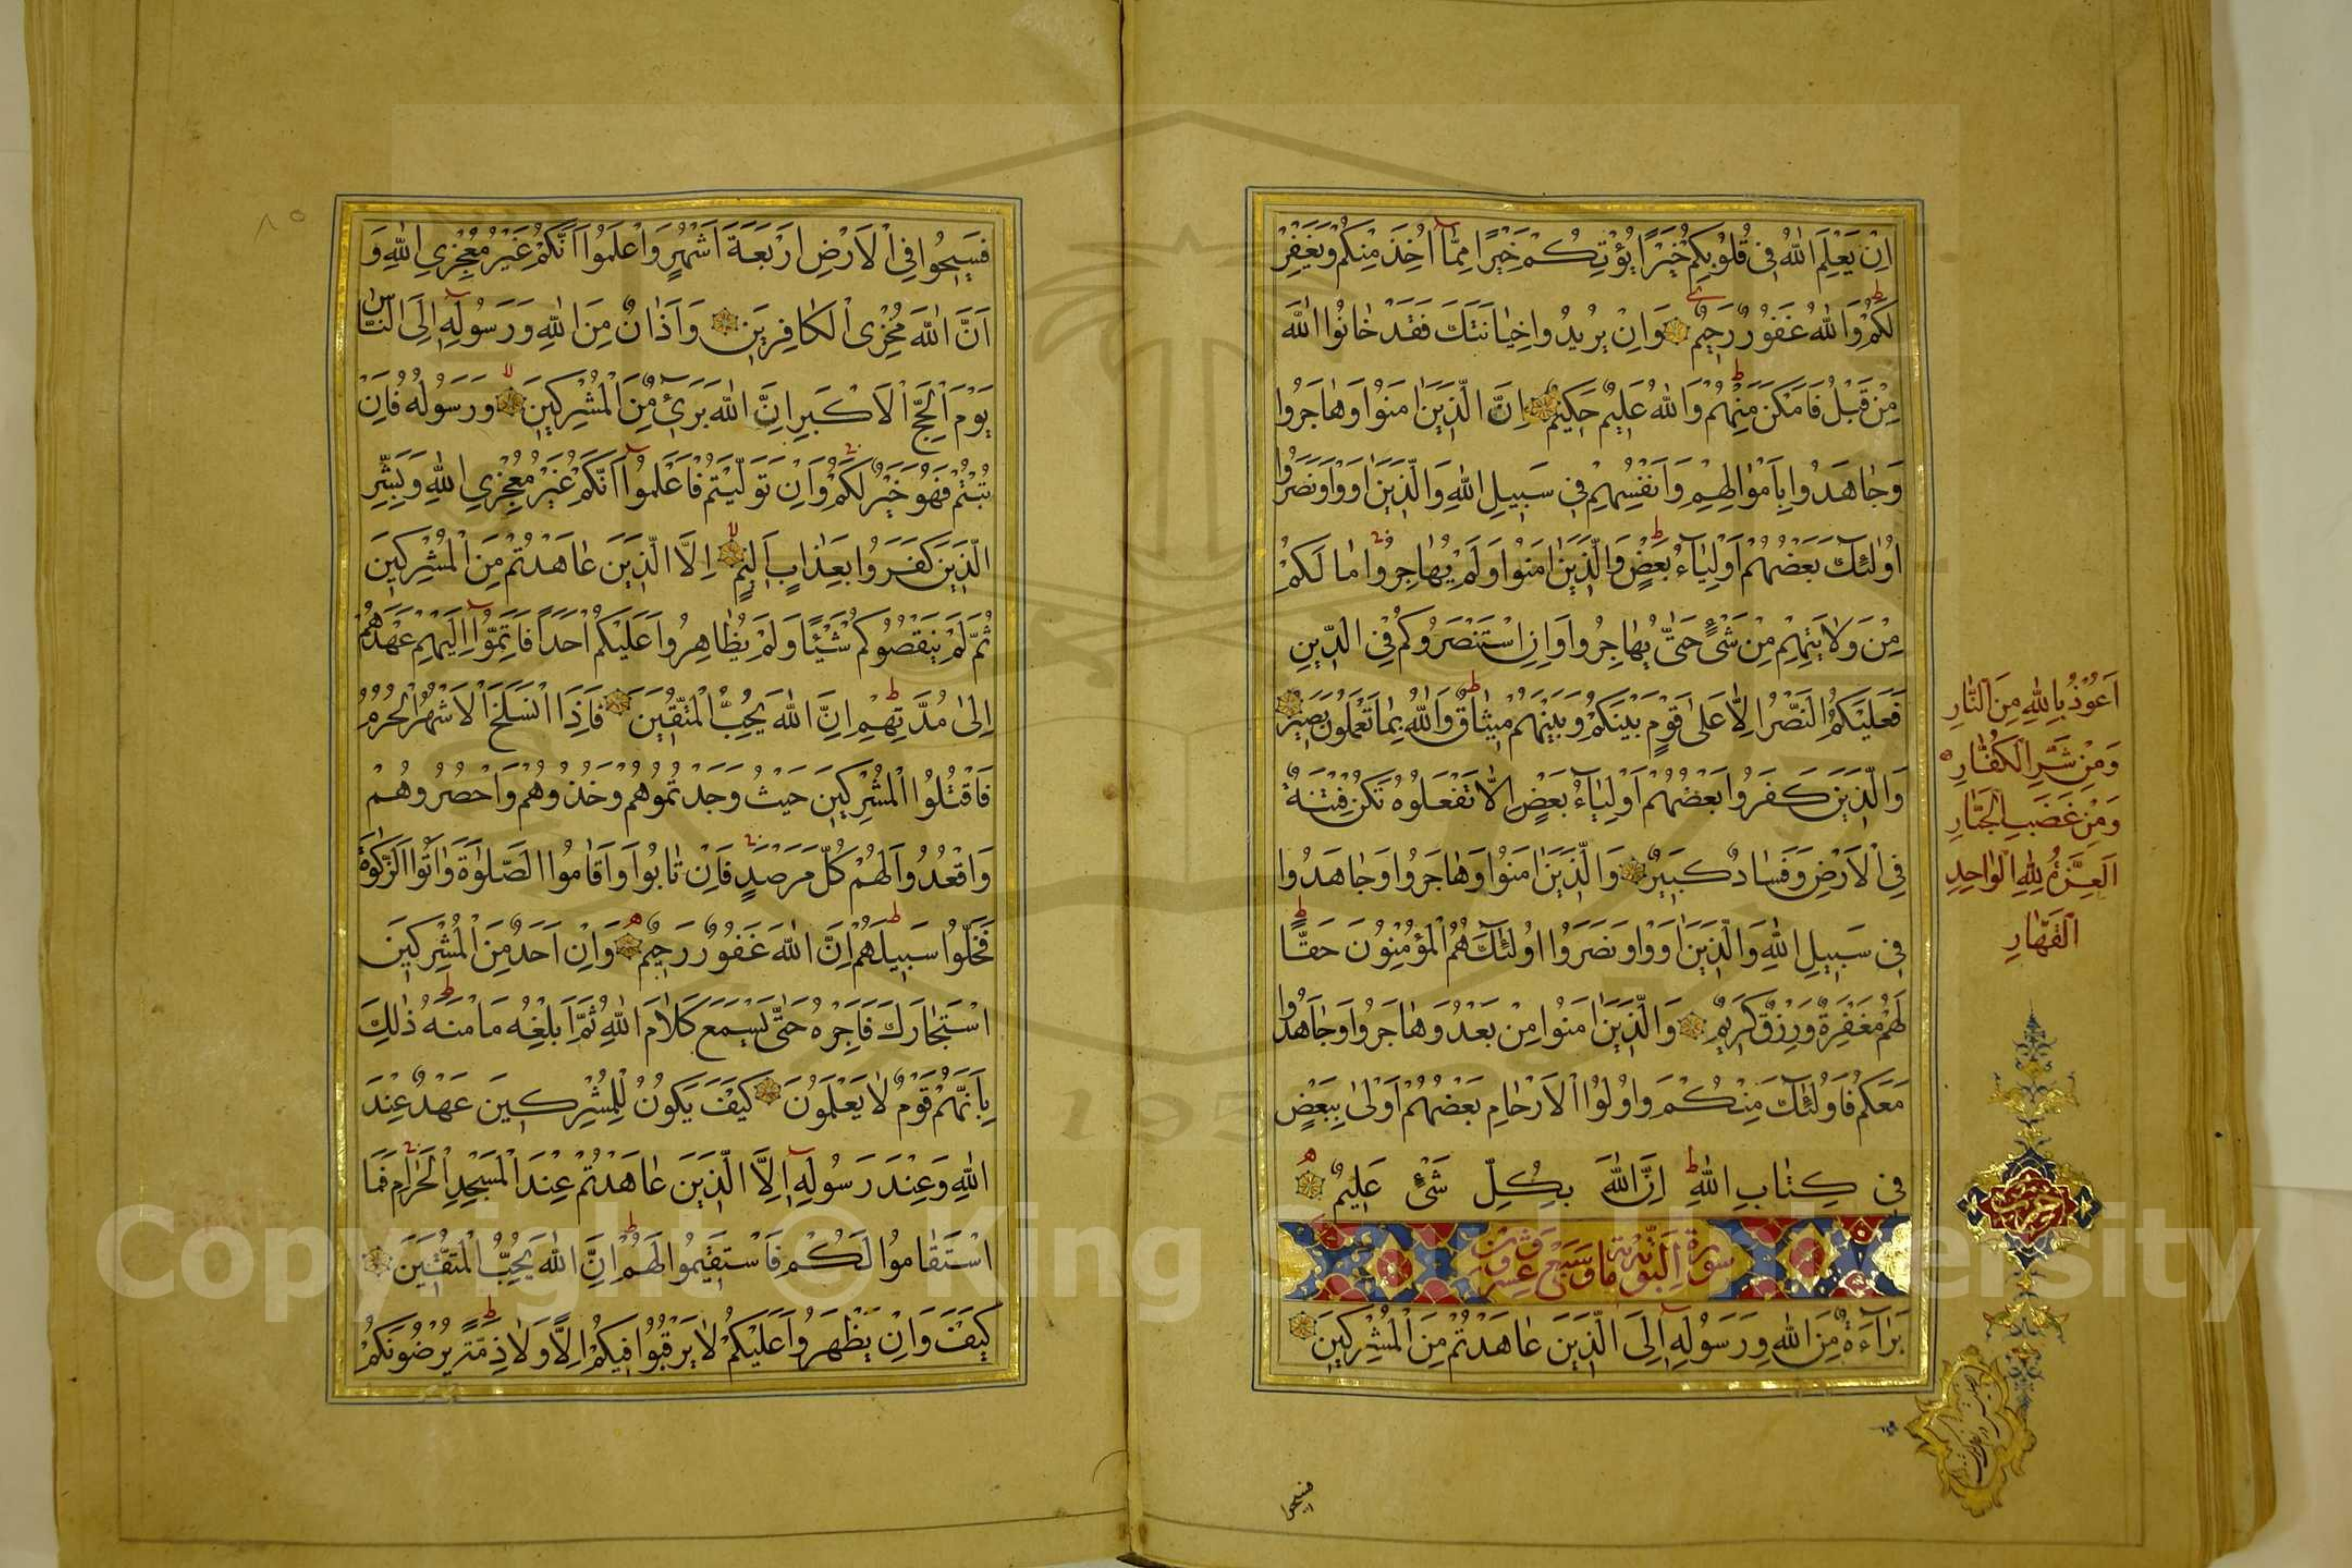 اِنْ يَعْلَمِ اللهُ فِى قُلُوبِكُمْ خَيْرًا يُؤْتِكُمْ خَيْرًا مِمَّا اُخِذَ مِنْكُمْ وَيَغْفِرْ
لَكُمْ وَاللهُ غَفُورٌ رَحِيمٌ وَاِنْ يُرِيدُوا خِيَانَتَكَ فَقَدْ خَانُوا اللهَ
مِنْ قَبْلُ فَاَمْكَنَ مِنْهُمْ وَاللهُ عَلِيمٌ حَكِيمٌ اِنَّ الَّذِينَ اٰمَنُوا وَهَاجَرُوا
وَجَاهَدُوا بِاَمْوَالِهِمْ وَاَنْفُسِهِمْ فِى سَبِيلِ اللهِ وَالَّذِينَ اٰوَوْا وَنَصَرُوا
اُولٰئِكَ بَعْضُهُمْ اَوْلِيَاءُ بَعْضٍ وَالَّذِينَ اٰمَنُوا وَلَمْ يُهَاجِرُوا مَا لَكُمْ
مِنْ وَلَايَتِهِمْ مِنْ شَىْءٍ حَتّٰى يُهَاجِرُوا وَاِنِ اسْتَنْصَرُوكُمْ فِى الدِّينِ
فَعَلَيْكُمُ النَّصْرُ اِلَّا عَلٰى قَوْمٍ بَيْنَكُمْ وَبَيْنَهُمْ مِيثَاقٌ وَاللهُ بِمَا تَعْمَلُونَ بَصِيرٌ
وَالَّذِينَ كَفَرُوا بَعْضُهُمْ اَوْلِيَاءُ بَعْضٍ اِلَّا تَفْعَلُوهُ تَكُنْ فِتْنَةٌ
فِى الْاَرْضِ وَفَسَادٌ كَبِيرٌ وَالَّذِينَ اٰمَنُوا وَهَاجَرُوا وَجَاهَدُوا
فِى سَبِيلِ اللهِ وَالَّذِينَ اٰوَوْا وَنَصَرُوا اُولٰئِكَ هُمُ الْمُؤْمِنُونَ حَقًّا
لَهُمْ مَغْفِرَةٌ وَرِزْقٌ كَرِيمٌ وَالَّذِينَ اٰمَنُوا مِنْ بَعْدُ وَهَاجَرُوا وَجَاهَدُوا
مَعَكُمْ فَاُولٰئِكَ مِنْكُمْ وَاُولُوا الْاَرْحَامِ بَعْضُهُمْ اَوْلٰى بِبَعْضٍ
فِى كِتَابِ اللهِ اِنَّ اللهَ بِكُلِّ شَىْءٍ عَلِيمٌ
سورة التوبة مائة وسبع وعشرون
بَرَاءَةٌ مِنَ اللهِ وَرَسُولِهِ اِلَى الَّذِينَ عَاهَدْتُمْ مِنَ الْمُشْرِكِينَ
فسيحوا
اَعُوذُ بِاللهِ مِنَ النَّارِ
وَمِنْ شَرِّ الْكُفَّارِ
وَمِنْ غَضَبِ الْجَبَّارِ
اَلْعِزَّةُ لِلهِ الْوَاحِدِ
الْقَهَّارِ
٨٥
فَسِيحُوا فِى الْاَرْضِ اَرْبَعَةَ اَشْهُرٍ وَاعْلَمُوا اَنَّكُمْ غَيْرُ مُعْجِزِى اللهِ وَ
اَنَّ اللهَ مُخْزِى الْكَافِرِينَ وَاَذَانٌ مِنَ اللهِ وَرَسُولِهِ اِلَى النَّاسِ
يَوْمَ الْحَجِّ الْاَكْبَرِ اَنَّ اللهَ بَرِىءٌ مِنَ الْمُشْرِكِينَ وَرَسُولُهُ فَاِنْ
تُبْتُمْ فَهُوَ خَيْرٌ لَكُمْ وَاِنْ تَوَلَّيْتُمْ فَاعْلَمُوا اَنَّكُمْ غَيْرُ مُعْجِزِى اللهِ وَبَشِّرِ
الَّذِينَ كَفَرُوا بِعَذَابٍ اَلِيمٍ اِلَّا الَّذِينَ عَاهَدْتُمْ مِنَ الْمُشْرِكِينَ
ثُمَّ لَمْ يَنْقُصُوكُمْ شَيْئًا وَلَمْ يُظَاهِرُوا عَلَيْكُمْ اَحَدًا فَاَتِمُّوا اِلَيْهِمْ عَهْدَهُمْ
اِلٰى مُدَّتِهِمْ اِنَّ اللهَ يُحِبُّ الْمُتَّقِينَ فَاِذَا انْسَلَخَ الْاَشْهُرُ الْحُرُمُ
فَاقْتُلُوا الْمُشْرِكِينَ حَيْثُ وَجَدْتُمُوهُمْ وَخُذُوهُمْ وَاحْصُرُوهُمْ
وَاقْعُدُوا لَهُمْ كُلَّ مَرْصَدٍ فَاِنْ تَابُوا وَاَقَامُوا الصَّلٰوةَ وَاٰتَوُا الزَّكٰوةَ
فَخَلُّوا سَبِيلَهُمْ اِنَّ اللهَ غَفُورٌ رَحِيمٌ وَاِنْ اَحَدٌ مِنَ الْمُشْرِكِينَ
اسْتَجَارَكَ فَاَجِرْهُ حَتّٰى يَسْمَعَ كَلَامَ اللهِ ثُمَّ اَبْلِغْهُ مَاْمَنَهُ ذٰلِكَ
بِاَنَّهُمْ قَوْمٌ لَا يَعْلَمُونَ كَيْفَ يَكُونُ لِلْمُشْرِكِينَ عَهْدٌ عِنْدَ
اللهِ وَعِنْدَ رَسُولِهِ اِلَّا الَّذِينَ عَاهَدْتُمْ عِنْدَ الْمَسْجِدِ الْحَرَامِ فَمَا
اسْتَقَامُوا لَكُمْ فَاسْتَقِيمُوا لَهُمْ اِنَّ اللهَ يُحِبُّ الْمُتَّقِينَ
كَيْفَ وَاِنْ يَظْهَرُوا عَلَيْكُمْ لَا يَرْقُبُوا فِيكُمْ اِلًّا وَلَا ذِمَّةً يُرْضُونَكُمْ
Copyright © King Saud University
195